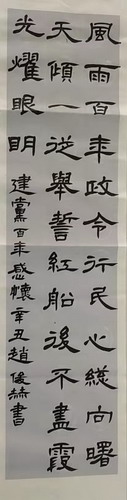 風雨百年政令行民心總向曙
天傾一從舉誓紅船後不盡霞
光耀眼明 建黨百年感懷辛丑趙俊赫書